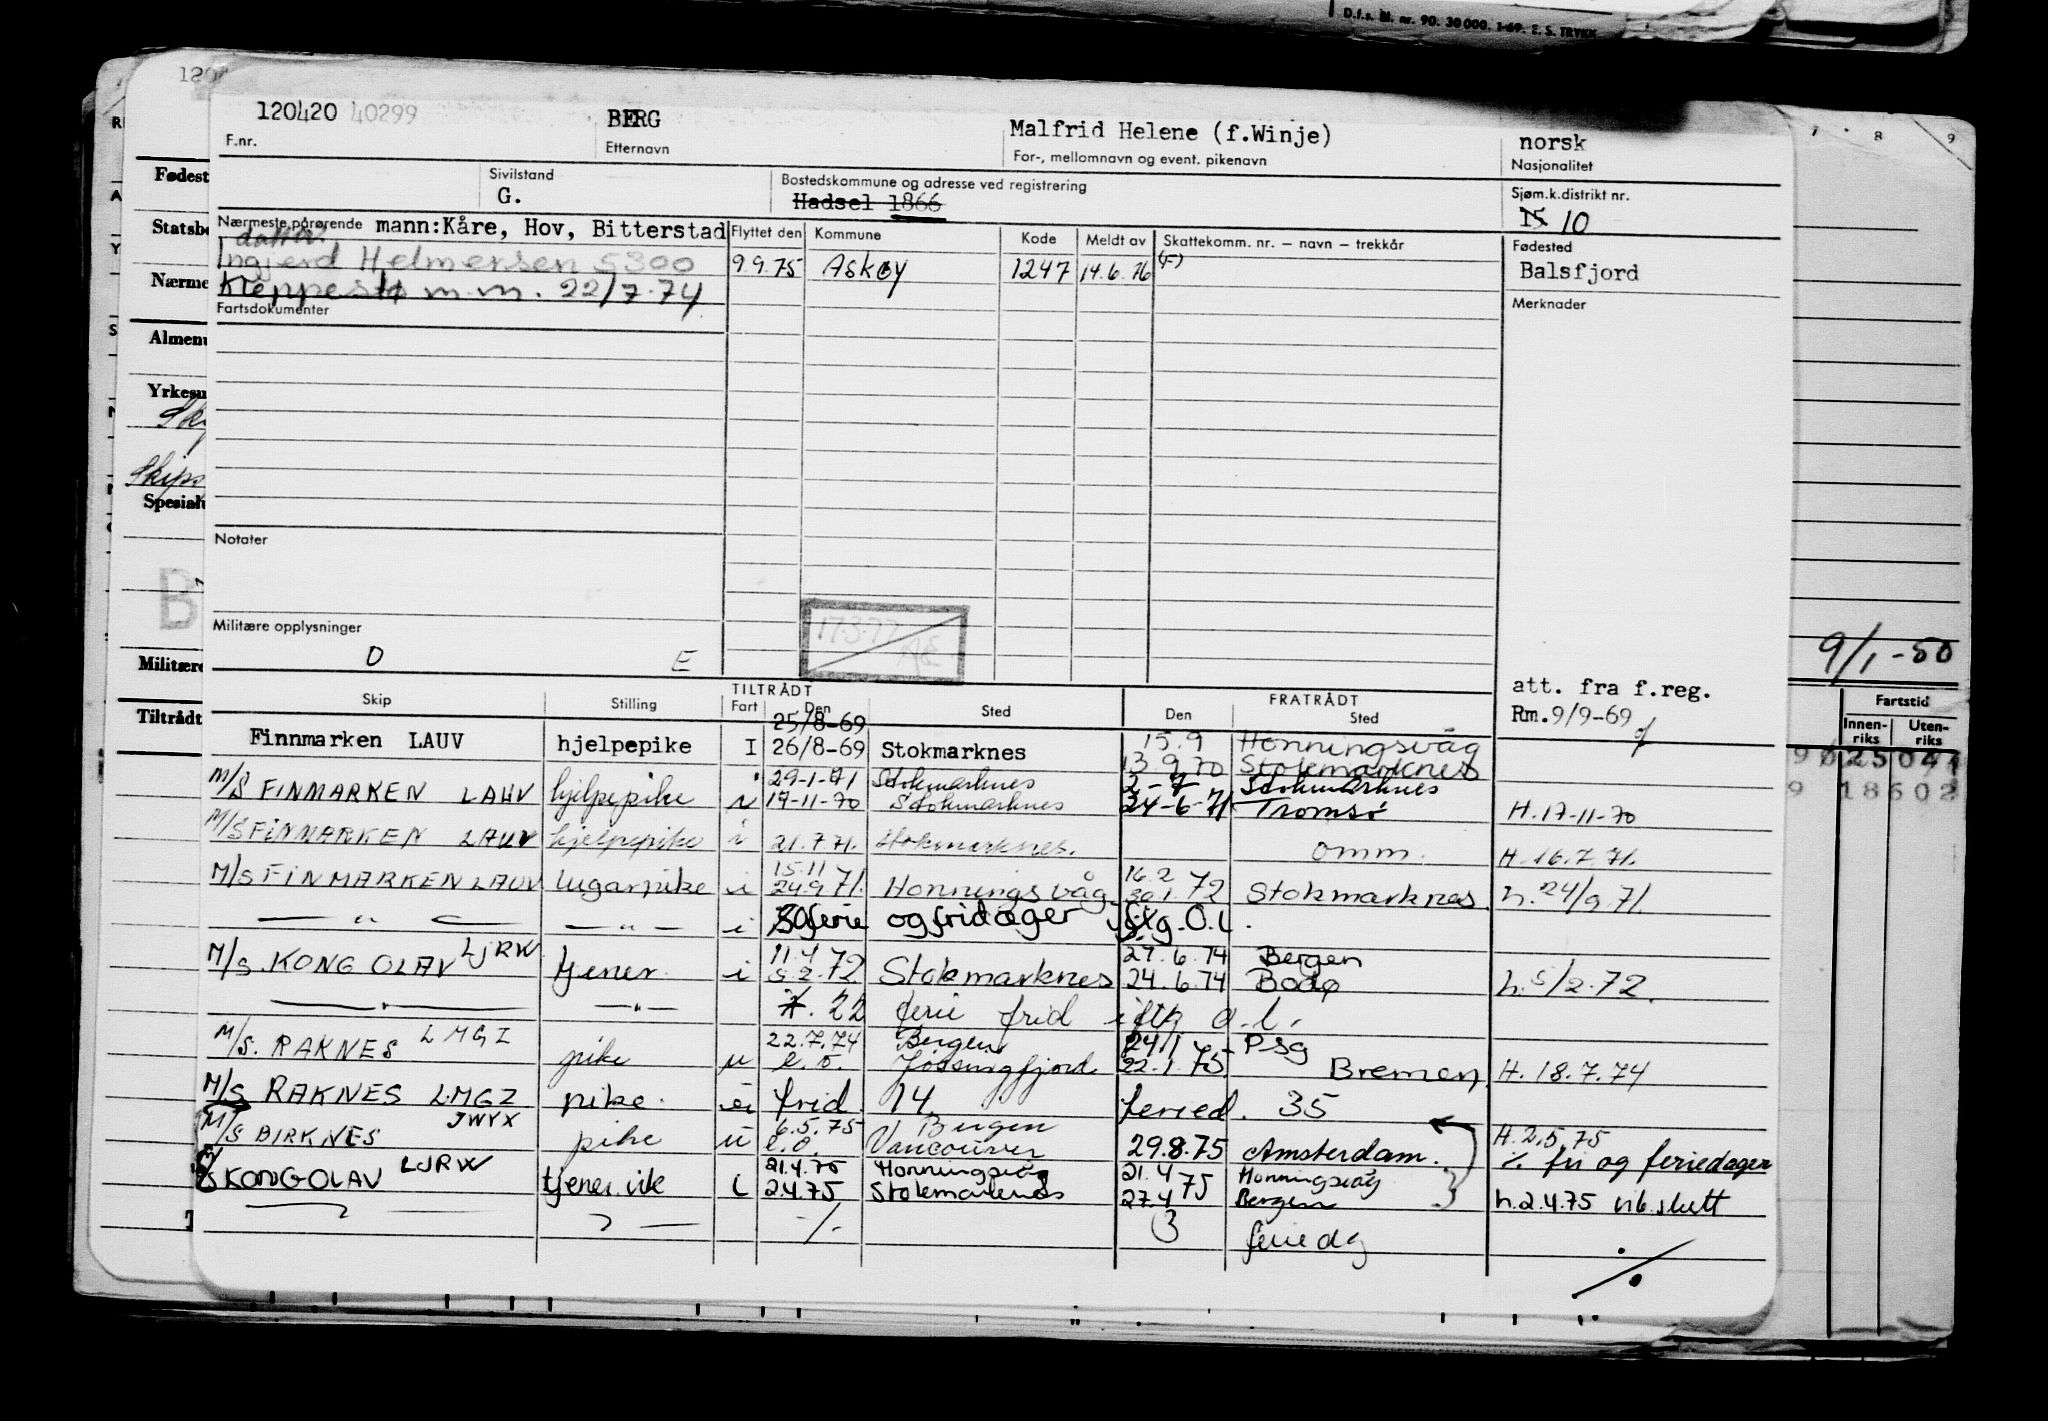 D.f.s. Bl. nr. 90. 30 000. 1-69. E. S. TRYKK
120420 40299 BERG Malfrid Helene (f.Winje) norsk
F.nr. Etternavn For-, mellomnavn og event. pikenavn Nasjonalitet
Sivilstand Bostedskommune og adresse ved registrering Sjøm.k.distrikt nr.
G. Hadsel 1866 15 10
Nærmeste pårørende mann:Kåre, Hov, Bitterstad Flyttet den Kommune Kode Meldt av Skattekomm. nr. — navn — trekkår Fødested
datter
Ingjerd Helmersen 5300 9.9.75 Askøy 1247 14.6.76 Balsfjord
Kleppestø m.m. 22/7.74 Merknader
Fartsdokumenter
Notater
17.3.77
Militære opplysninger
O E
9/1-50
att. fra f.reg.
Rm.9/9-69
TILTRÅDT FRATRÅDT
Skip Stilling Fart Den Sted Den Sted
25/8-69 15.9 Honningsvåg
Finnmarken LAUV hjelpepike I 26/8-69 Stokmarknes 13.9.70 Stokmarknes
29-1-71 Stokmarknes 2-7 Stokmarknes
M/S FINMARKEN LAUV hjelpepike i 19-11-70 Stokmarknes 24-6-71 Tromsø H.17-11-70
M/S FINMARKEN LAUV hjelpepike i 21.7.71. Stokmarknes. omm. H.16.7.71.
15.11 16.2
M/S FINMARKEN LAUV lugarpike i 24.9 71. Honningsvåg 30.1 72 Stokmarknes. h.24/9 71.
— " — — " — i ferie og fridager
11.4 27.6.74 Bergen
M/S. KONG OLAV LJRW tjener i 5.2.72 Stokmarknes 24.6.74 Bodø h.5/2-72.
— " — — " — 22 ferie frid
22.7.74 Bergen 24/1 Psg
M/S. RAKNES LMGI pike u e.o. Jøssingfjord 22.1.75 Bremen H.18.7.74
M/S RAKNES LMGI pike frid 14 feried. 35
6.5.75 Bergen H.2.5.75
M/S BIRKNES JWYX pike u e.o. Vancouver 29.8.75 Amsterdam. % fri og feriedager
21.4.75 Honningsvåg 21.4 Honningsvåg
KONG OLAV LJRW tjener.vik i 2.4.75 Stokmarknes 27.4 75 Bergen h.2.4.75 vik.slutt
-/- 3 feriedg
Fødest
Statsb
Nærme
Almen
Yrkesu
Skips
Spesial
Militære
Tiltrådt
Fartstid
Innen-
riks
Uten-
riks